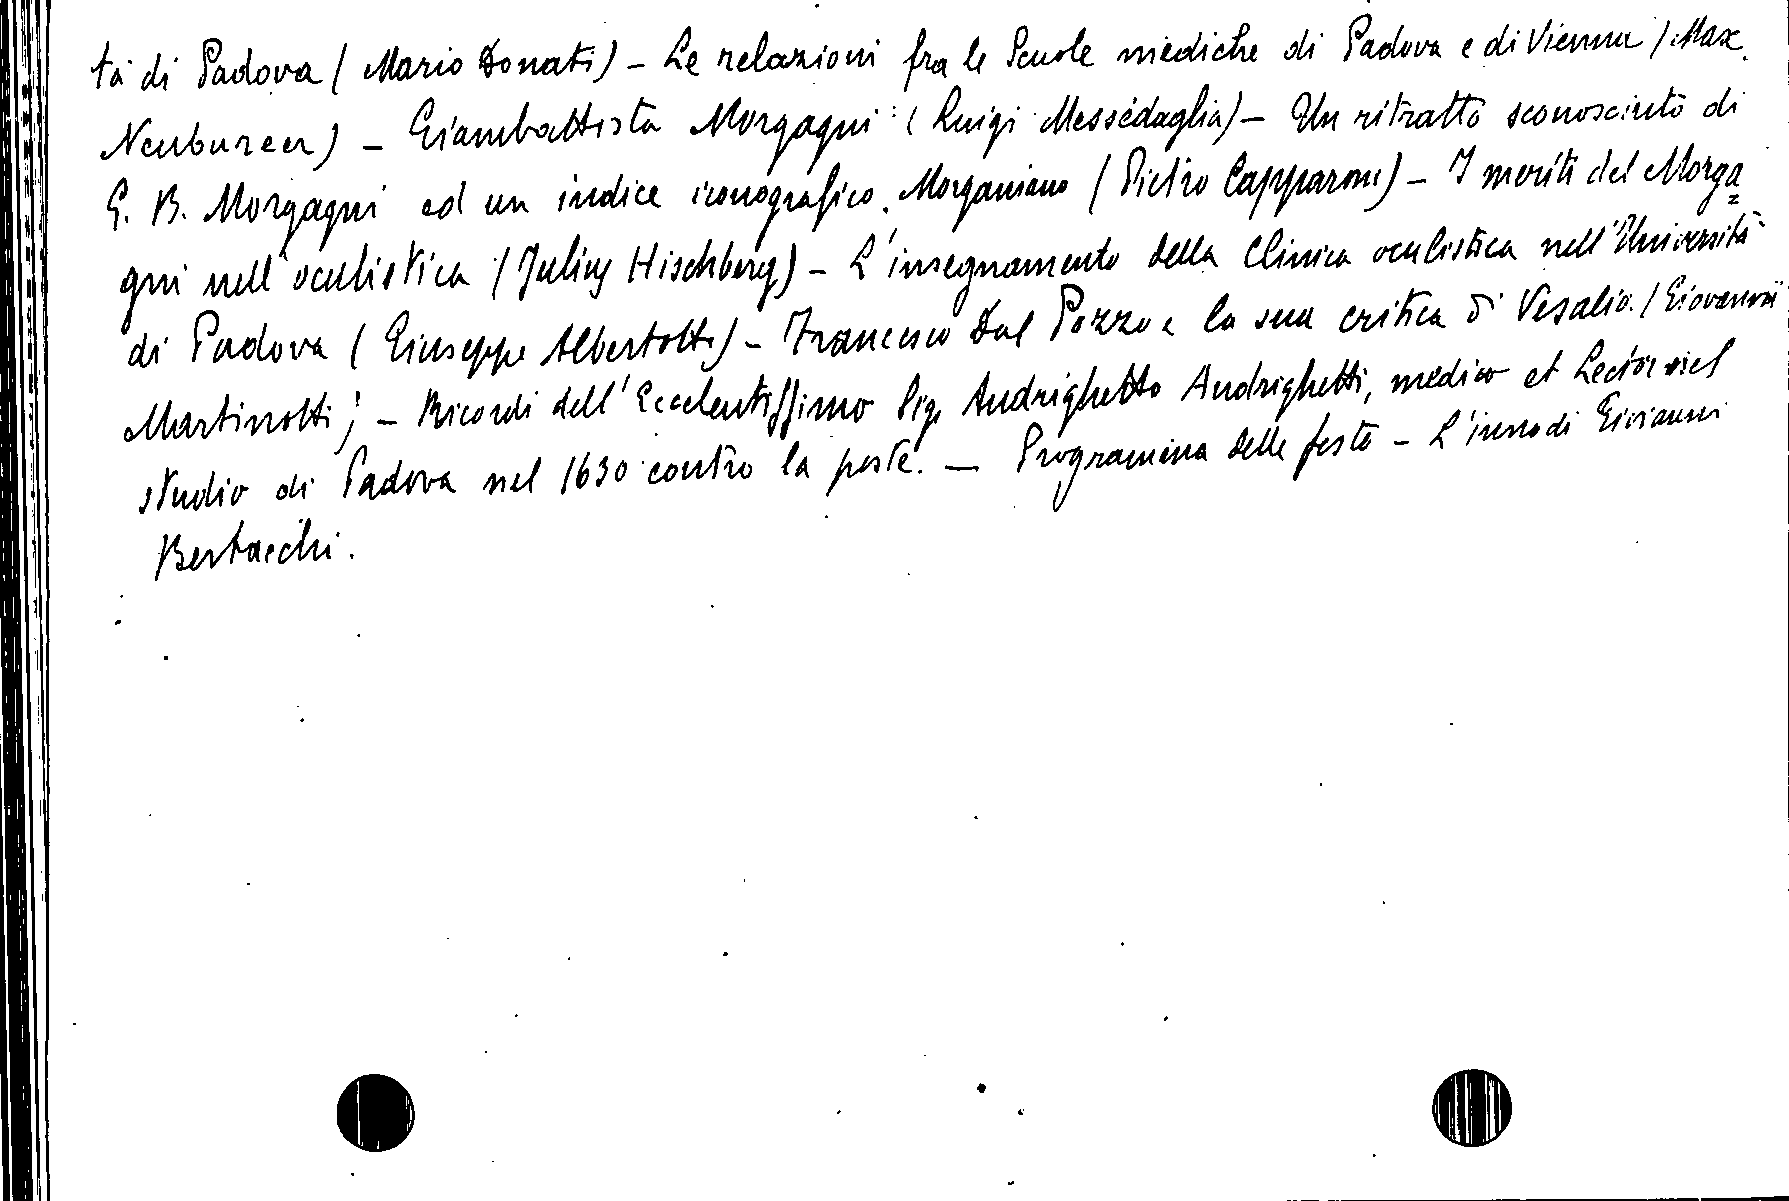 tà di Padova (Mario Donati) – Le relazioni fra le Scuole mediche di Padova e di Vienna (Max.
Neuburger) – Giambattista Morgagni (Luigi Messedaglia) – Un ritratto sconosciuto di
G. B. Morgagni ed un indice iconografico Morganiano (Pietro Capparoni) – I meriti del Morga=
gni nell'oculistica (Julius Hischberg) – L'insegnamento della Clinica oculistica nell'Università
di Padova (Giuseppe Albertotti) – Francesco Dal Pozzo e la sua critica di Vesalio. (Giovanni
Martinotti) – Ricordi dell'Eccelentissimo Sig. Andrighetto Andrighetti, medico et Lector nel
studio di Padova nel 1630 contro la peste. – Programma delle feste – L'inno di Giovanni
Bertacchi.